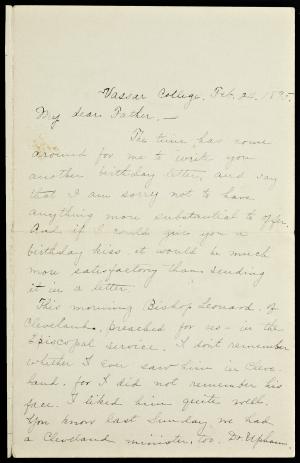 Vassar College, Feb. 24, 1895.
My dear Father, —
The time has come
around for me to write you
another birthday letter, and say
that I am sorry not to have
anything more substantial to offer.
And if I could give you a
birthday kiss, it would be much
more satisfactory than sending
it in a letter.
This morning Bishop Leonard, of
Cleveland, preached for us - in the
Episcopal service. I don't remember
whether I ever saw him in Cleve-
land, for I did not remember his
face. I liked him quite well.
You know last Sunday we had
a Cleveland minister, too. Dr. Upham.